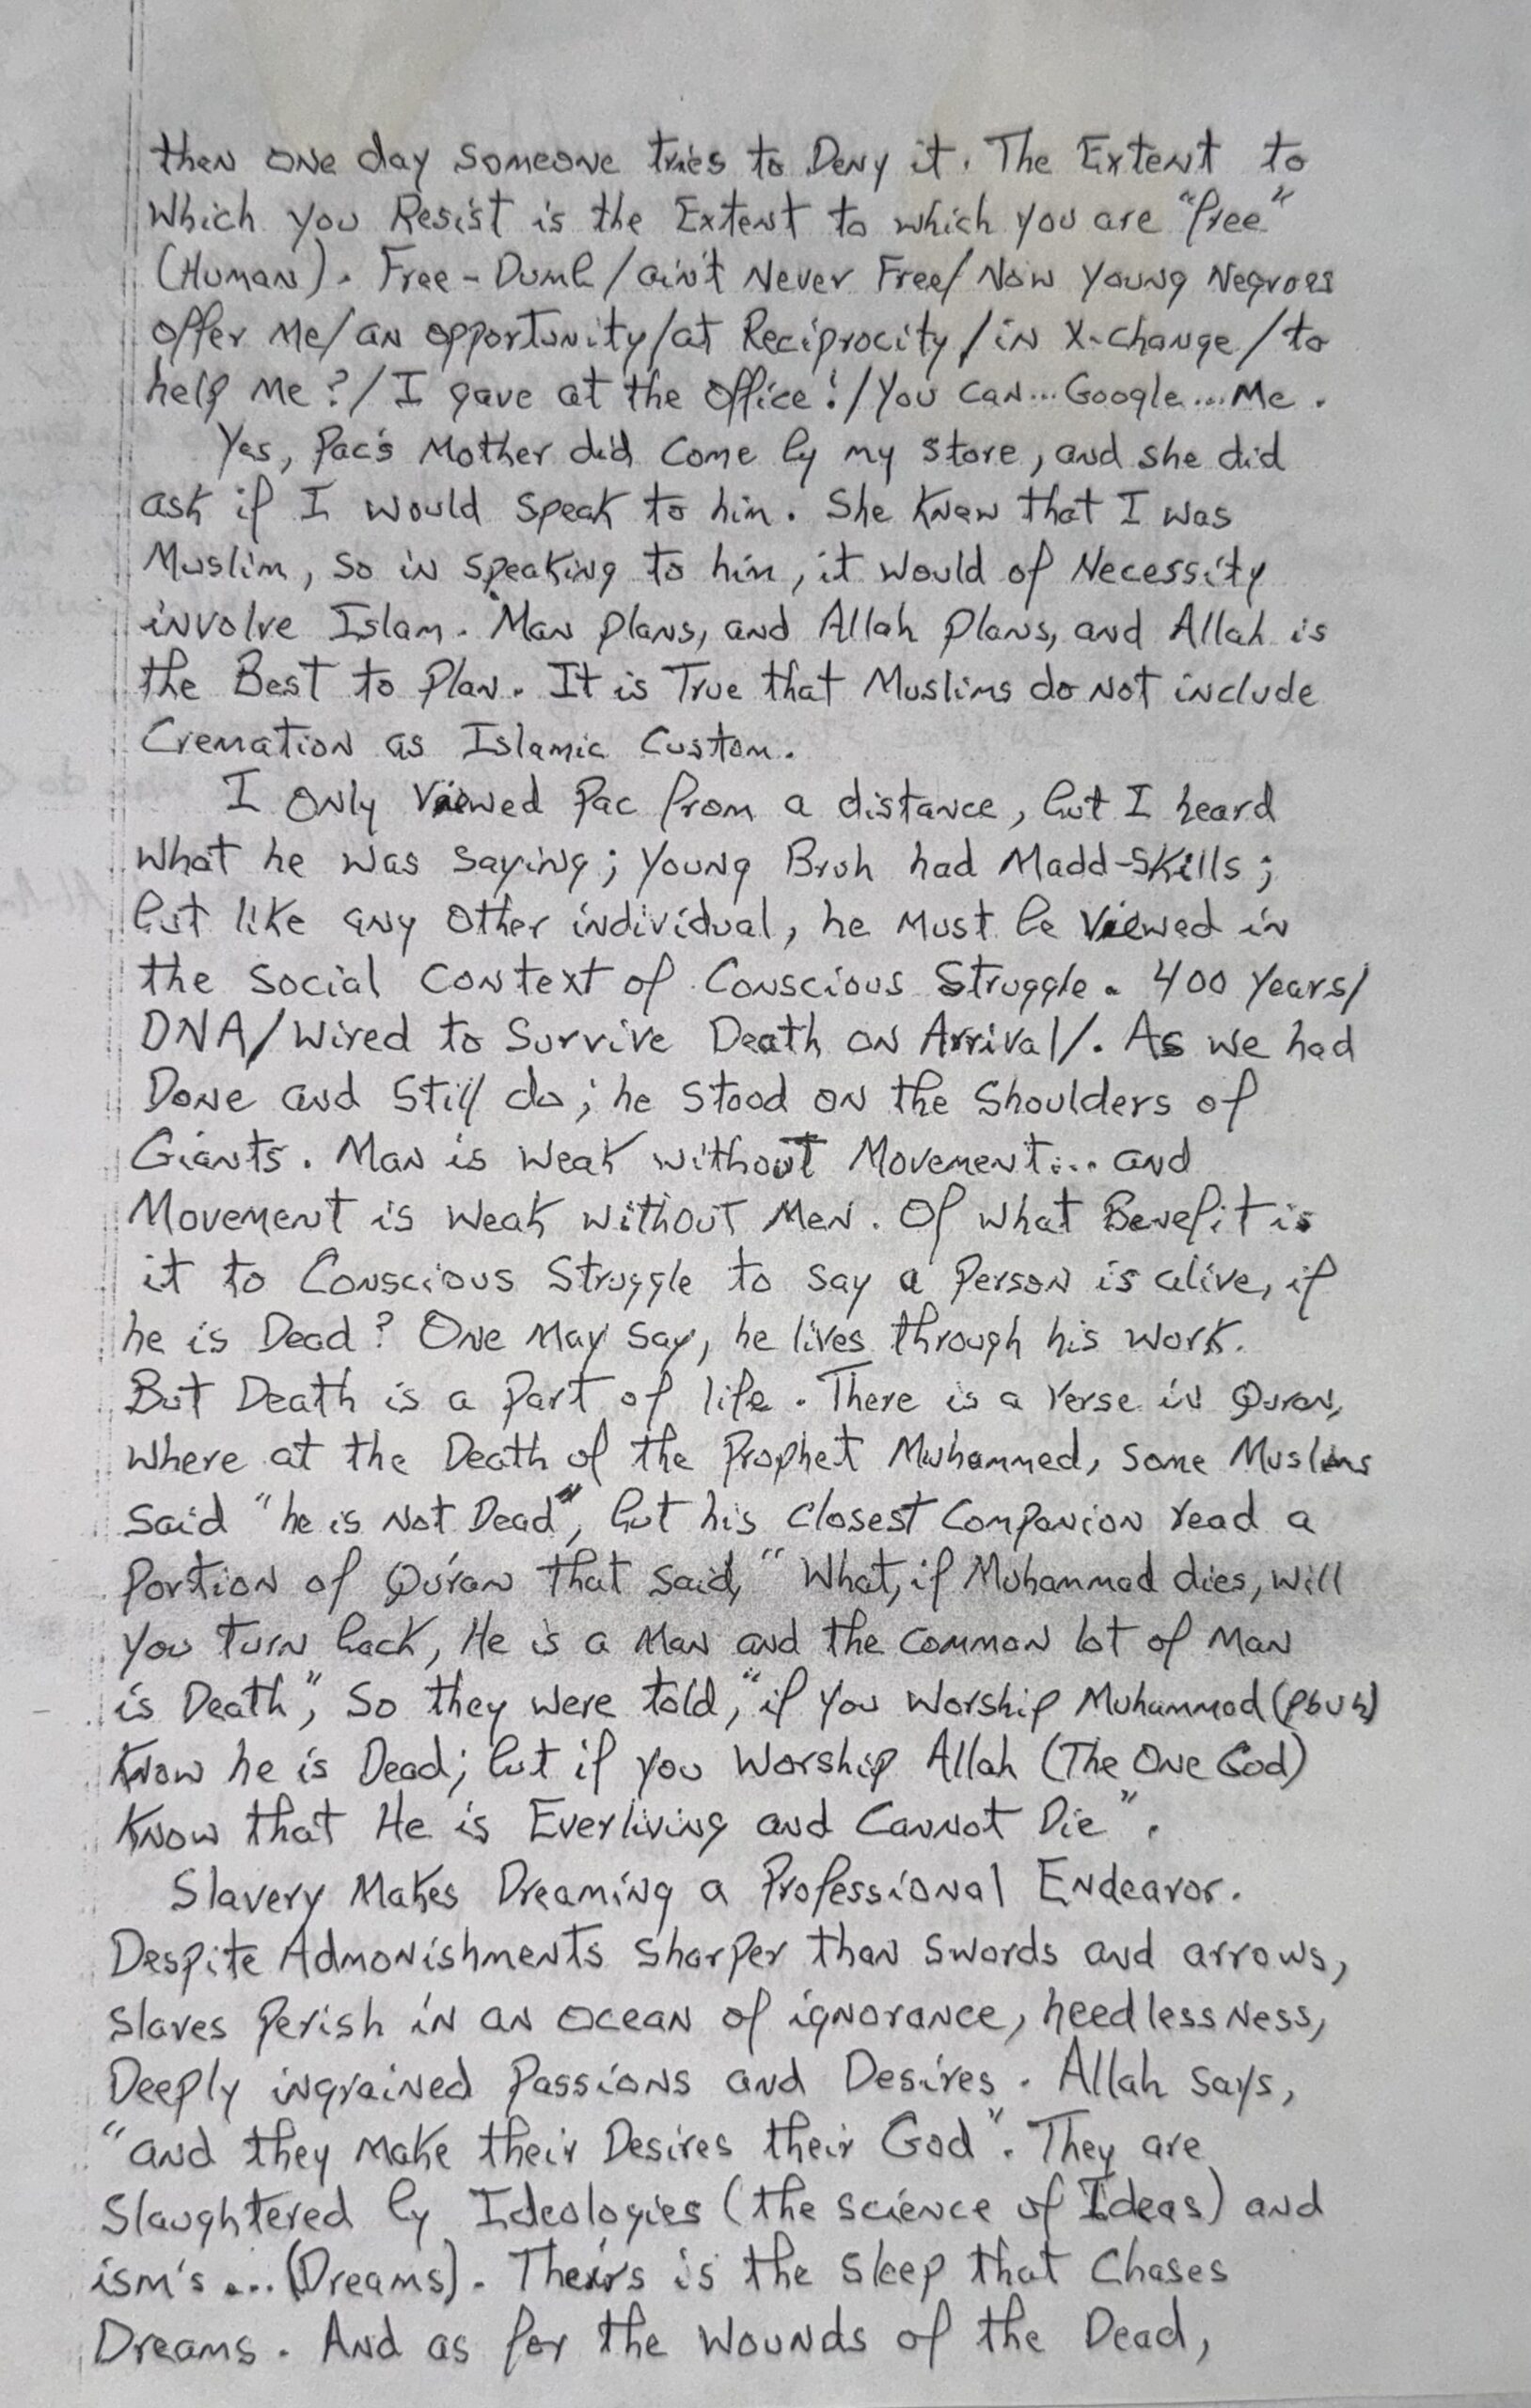 then one day someone tries to Deny it. The Extent to
Which you Resist is the Extent to which you are "free"
(Human). Free-Dumb/ain't Never Free/Now Young Negroes
offer Me/an opportunity/at Reciprocity/in X-change/to
help Me?/I gave at the office!/You can...Google...Me.
Yes, Pac's Mother did come by my store, and she did
ask if I would speak to him. She Knew that I was
Muslim, so in speaking to him, it would of Necessity
involve Islam. Man plans, and Allah plans, and Allah is
the Best to Plan. It is True that Muslims do not include
Cremation as Islamic Custom.
I only Viewed Pac from a distance, but I heard
what he was saying; young Bruh had Madd-Skills;
but like any other individual, he must be Viewed in
the social context of Conscious Struggle. 400 years/
DNA/Wired to Survive Death on Arrival/. As we had
Done and Still do; he stood on the Shoulders of
Giants. Man is weak without Movement... and
Movement is weak without Men. Of what Benefit is
it to Conscious Struggle to say a person is alive, if
he is Dead? One may say, he lives through his work.
But Death is a part of life. There is a verse in Quran,
where at the Death of the Prophet Muhammed, some Muslims
said "he is not Dead", but his closest Companion read a
portion of Qu'ran that said, "What, if Muhammad dies, will
you turn back, He is a man and the common lot of man
is Death", So they were told, "if you worship Muhammad (pbuh)
Know he is Dead; but if you Worship Allah (The One God)
Know that He is Everliving and Cannot Die".
Slavery Makes Dreaming a Professional Endeavor.
Despite Admonishments sharper than swords and arrows,
slaves perish in an ocean of ignorance, heedlessness,
Deeply ingrained passions and Desires. Allah says,
"and they make their Desires their God". They are
Slaughtered by Ideologies (the science of Ideas) and
ism's... (Dreams). Theirs is the sleep that Chases
Dreams. And as for the wounds of the Dead,